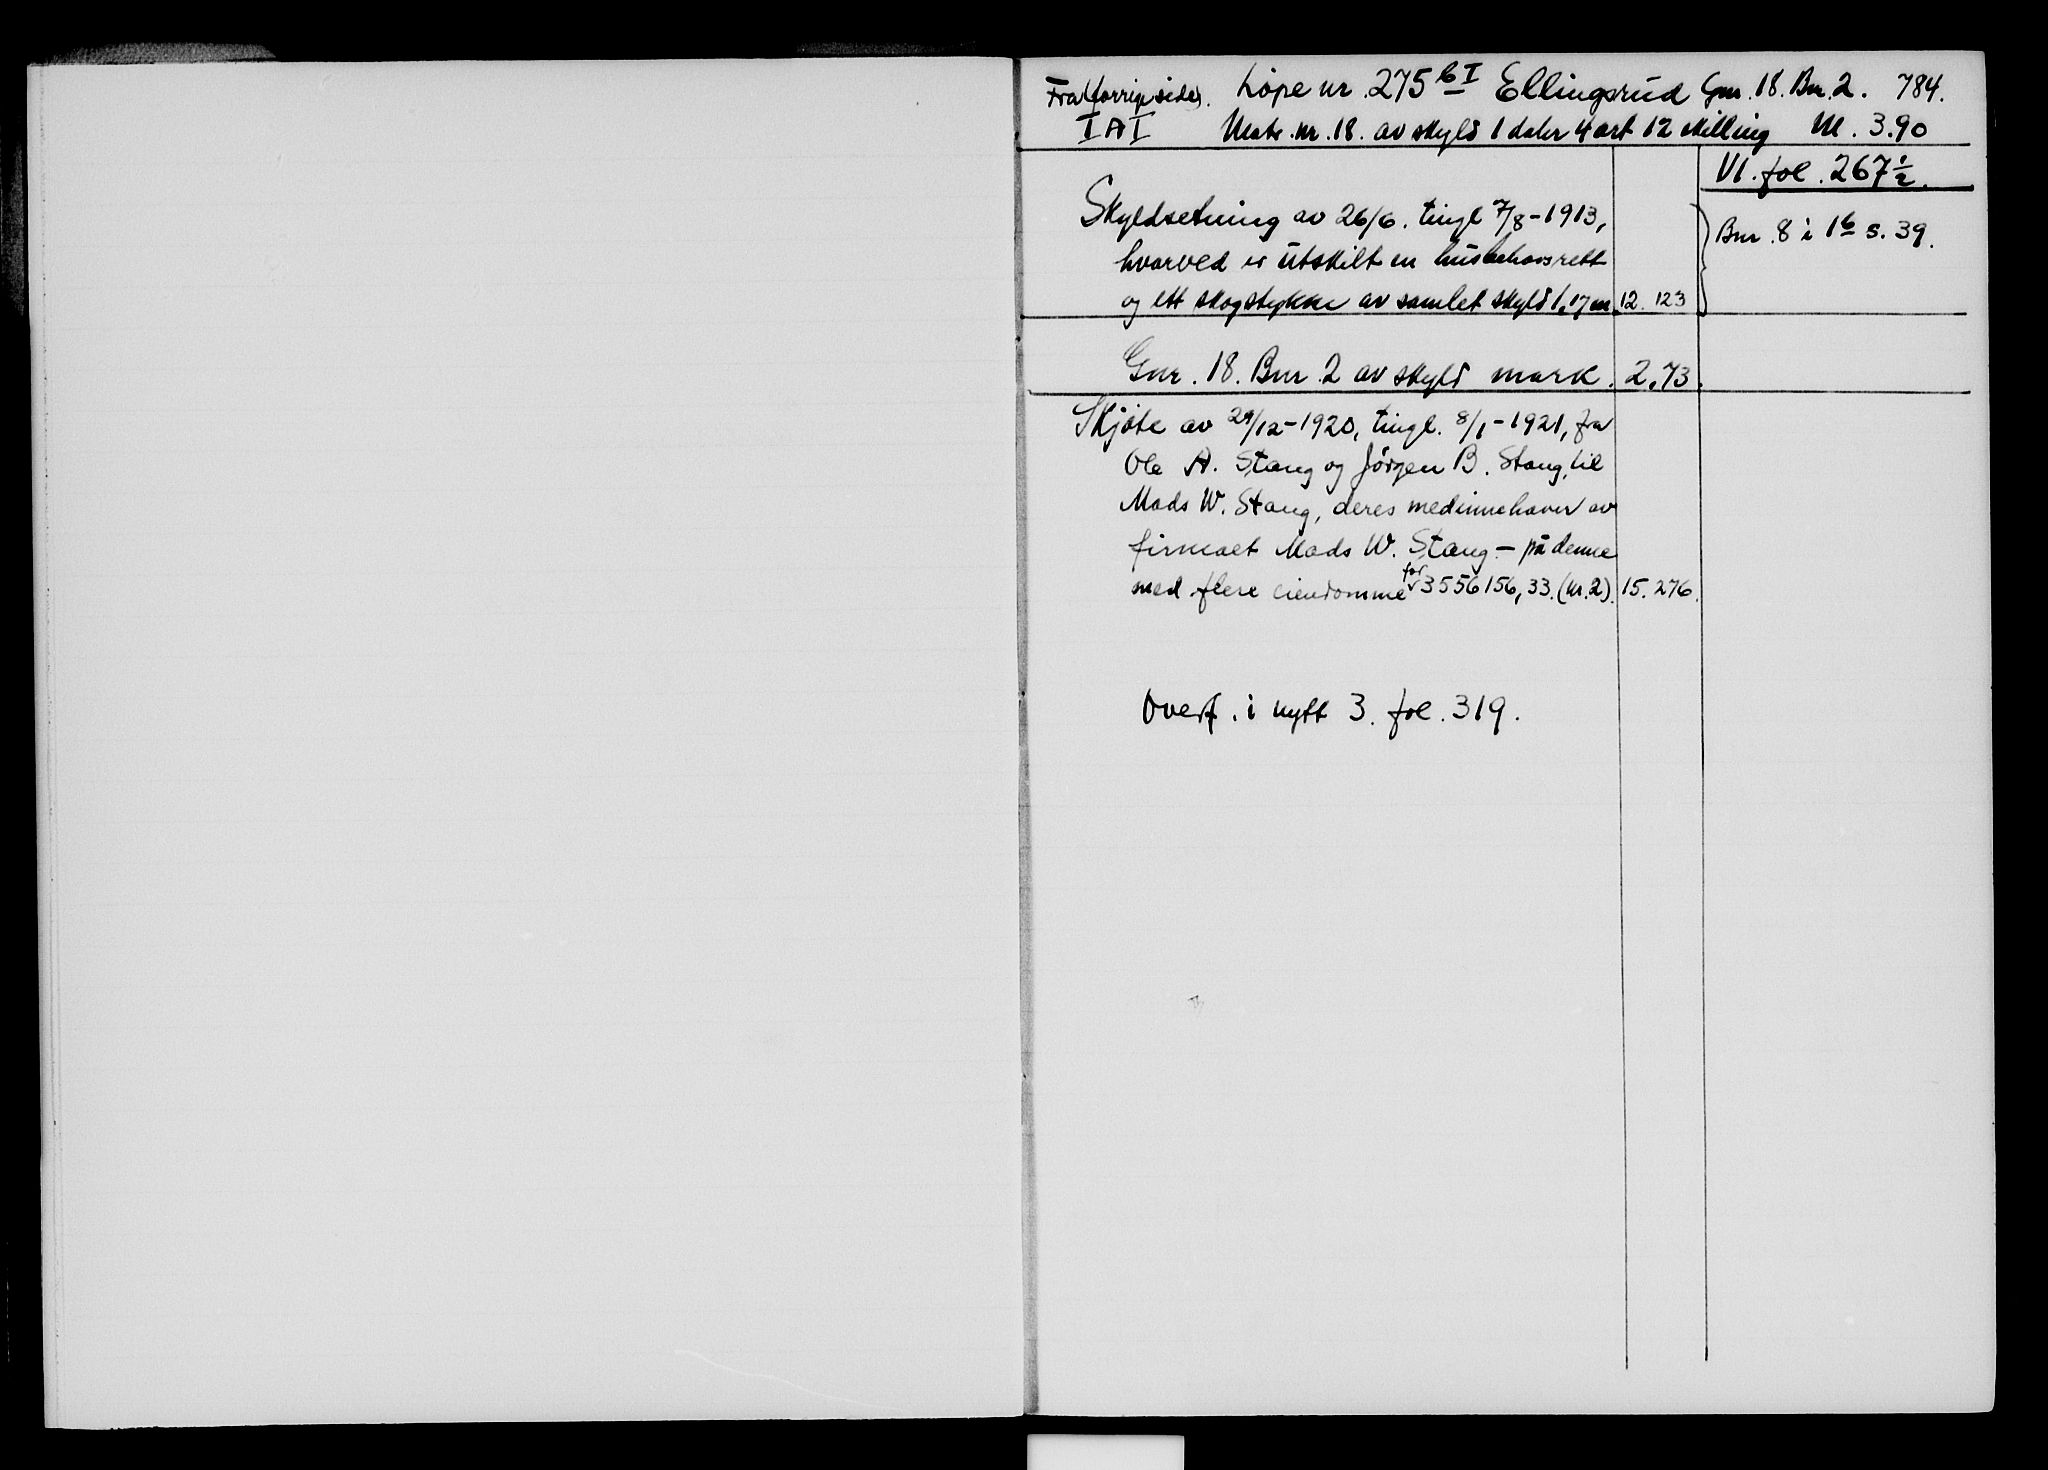 Fra (forrige side). Löpe nr. 275 b I Ellingsrud Gnr. 18. Bnr. 2. 784.
I A I Matr. nr. 18. av skyld 1 daler 4 ort 12 skilling M. 3.90
VI. fol. 267 1/2.
Skyldsetning av 26/6. tingl 7/8-1913,
Bnr. 8 i 1b s. 39.
hvorved er utskilt en husbehovsrett
og ett skogstykke av samlet skyld 1,17 m. 12. 123
Gnr. 18. Bnr. 2 av skyld mark. 2,73.
Skjöte av 29/12-1920, tingl. 8/1-1921, fra
Ole A. Stang og Jörgen B. Stang, til
Mads W. Stang, deres medinnehaver av
firmaet Mads W. Stang - på denne
med flere eiendomme for 3556156,33. (kr. 2). 15. 276.
Overf. i nytt 3. fol. 319.